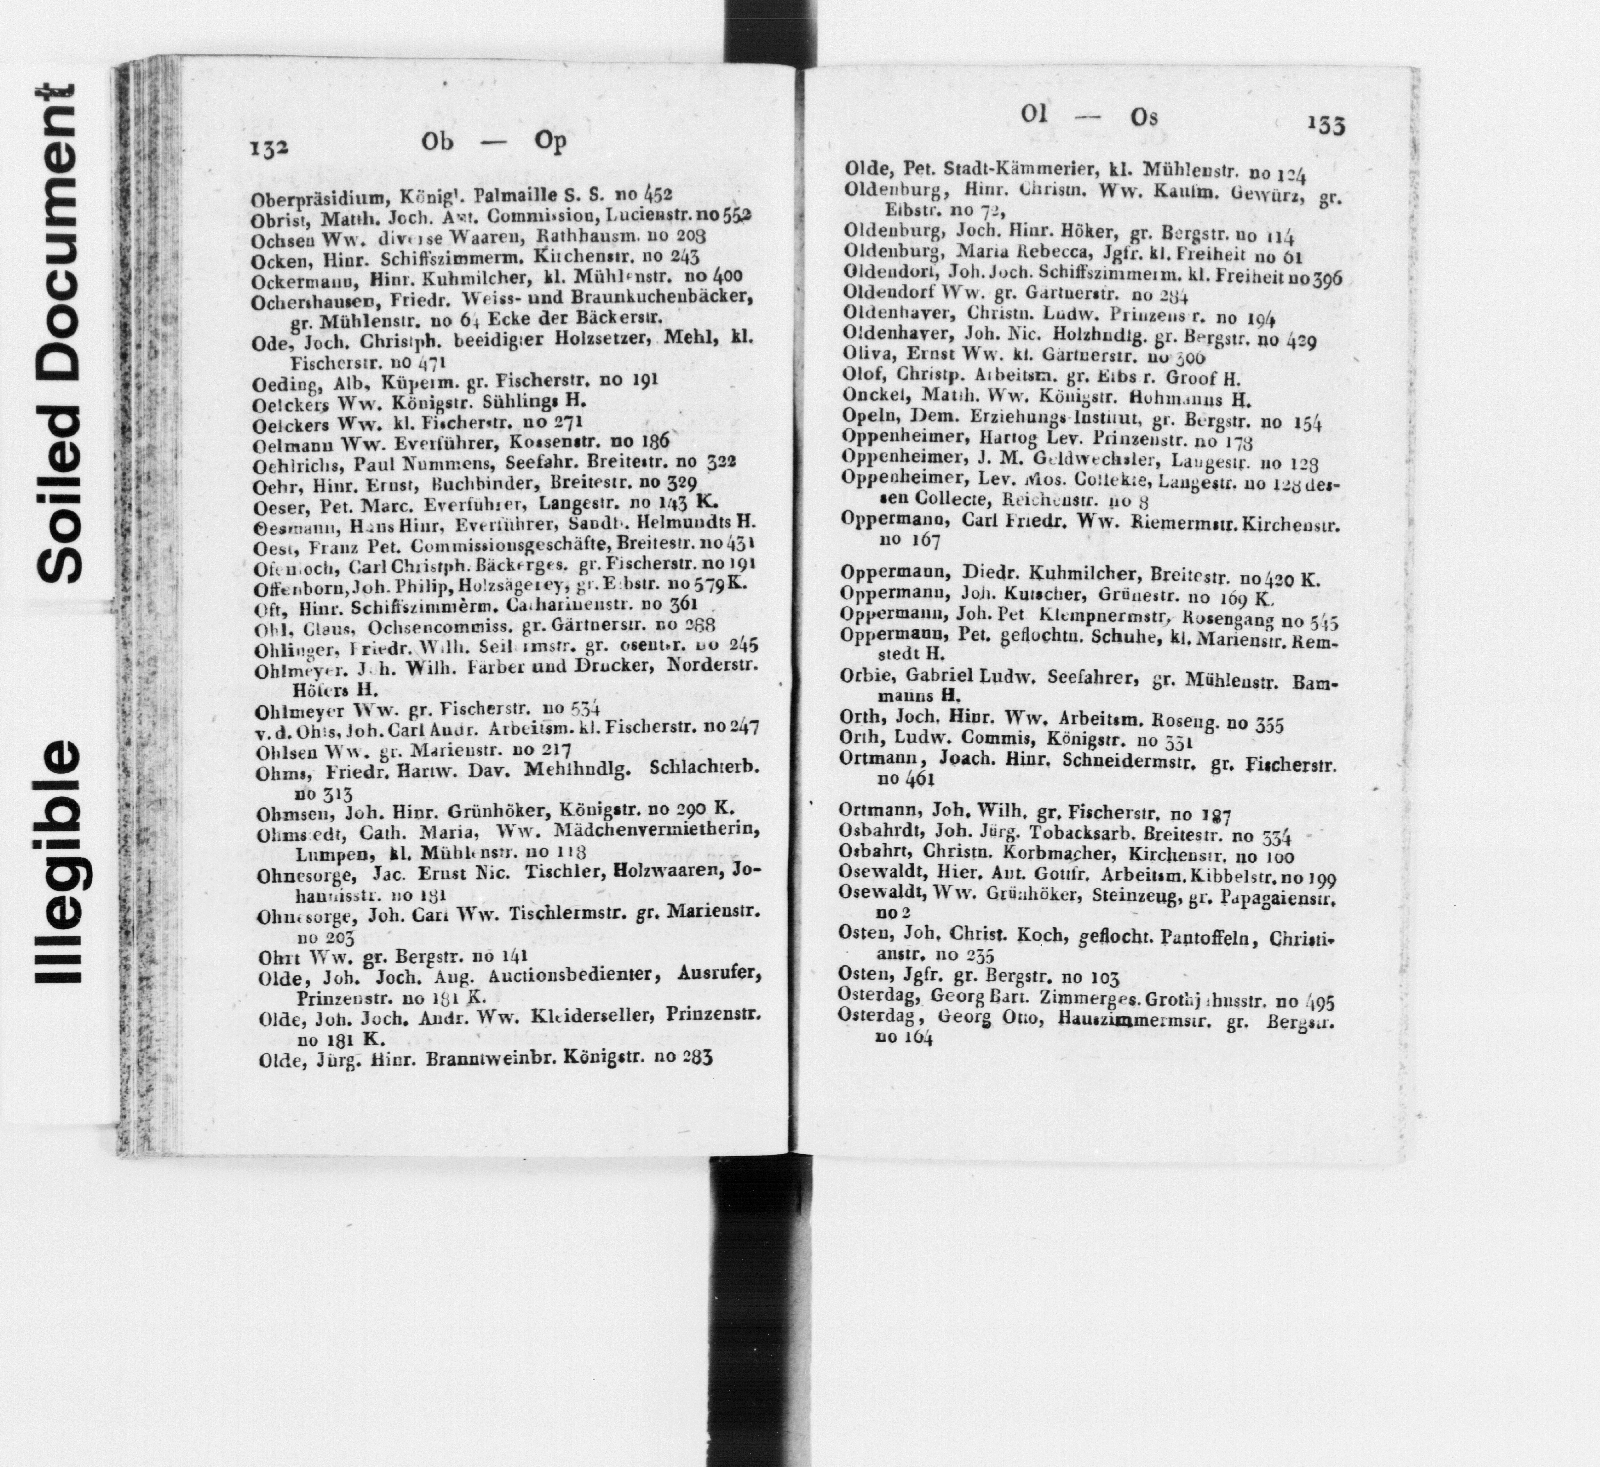 Illegible Soiled Document
132 Ob — Op
Oberpräsidium, Königl. Palmaille S. S. no 452
Obrist, Matth. Joch. Ant. Commission, Lucienstr. no 552
Ochsen Ww. diverse Waaren, Rathhausm. no 208
Ocken, Hinr. Schiffszimmerm. Kirchenstr. no 243
Ockermann, Hinr. Kuhmilcher, kl. Mühlenstr. no 400
Ochershausen, Friedr. Weiss- und Braunkuchenbäcker,
gr. Mühlenstr. no 64 Ecke der Bäckerstr.
Ode, Joch. Christph. beeidigter Holzsetzer, Mehl, kl.
Fischerstr. no 471
Oeding, Alb. Küperm. gr. Fischerstr. no 191
Oelckers Ww. Königstr. Sühlings H.
Oelckers Ww. kl. Fischerstr. no 271
Oelmann Ww. Everführer, Kossenstr. no 186
Oehlrichs, Paul Nummens, Seefahr. Breitestr. no 322
Oehr, Hinr. Ernst, Buchbinder, Breitestr. no 329
Oeser, Pet. Marc. Everführer, Langestr. no 143 K.
Oesmann, Hans Hinr. Everführer, Sandb. Helmundts H.
Oest, Franz Pet. Commissionsgeschäfte, Breitestr. no 431
Carl Christph. Bäckerges. gr. Fischerstr. no 191
Offenborn, Joh. Philip, Holzsägerey, gr. Elbstr. no 579 K.
Oft, Hinr. Schiffszimmerm. Catharinenstr. no 361
Ohl, Claus, Ochsencommiss. gr. Gärtnerstr. no 288
Ohlinger, Friedr. Wilh. gr. no 245
Ohlmeyer, Joh. Wilh. Färber und Drucker, Norderstr.
Höfers H.
Ohlmeyer Ww. gr. Fischerstr. no 534
v. d. Ohls, Joh. Carl Andr. Arbeitsm. kl. Fischerstr. no 247
Ohlsen Ww. gr. Marienstr. no 217
Ohms, Friedr. Hartw. Dav. Mehlhndlg. Schlachterb.
no 313
Ohmsen, Joh. Hinr. Grünhöker, Königstr. no 290 K.
Ohmstedt, Cath. Maria, Ww. Mädchenvermietherin,
Lumpen, kl. Mühlenstr. no 118
Ohnesorge, Jac. Ernst Nic. Tischler, Holzwaaren, Jo-
hannisstr. no 181
Ohnesorge, Joh. Carl Ww. Tischlermstr. gr. Marienstr.
no 203
Ohrt Ww. gr. Bergstr. no 141
Olde, Joh. Joch. Aug. Auctionsbedienter, Ausrufer,
Prinzenstr. no 181 K.
Olde, Joh. Joch. Andr. Ww. Kleiderseller, Prinzenstr.
no 181 K.
Olde, Jürg. Hinr. Branntweinbr. Königstr. no 283
Ol — Os 133
Olde, Pet. Stadt-Kämmerier, kl. Mühlenstr. no 124
Oldenburg, Hinr. Christn. Ww. Kaufm. Gewürz, gr.
Elbstr. no 72,
Oldenburg, Joch. Hinr. Höker, gr. Bergstr. no 114
Oldenburg, Maria Rebecca, Jgfr. kl. Freiheit no 61
Oldendorf, Joh. Joch. Schiffszimmerm. kl. Freiheit no 396
Oldendorf Ww. gr. Gärtnerstr. no 284
Oldenhaver, Christn. Ludw. Prinzenstr. no 194
Oldenhaver, Joh. Nic. Holzhndlg. gr. Bergstr. no 429
Oliva, Ernst Ww. kl. Gärtnerstr. no 306
Olof, Christp. Arbeitsm. gr. Elbstr. Groof H.
Onckel, Matth. Ww. Königstr. Hohmanns H.
Opeln, Dem. Erziehungs-Institut, gr. Bergstr. no 154
Oppenheimer, Hartog Lev. Prinzenstr. no 178
Oppenheimer, J. M. Geldwechsler, Langestr. no 128
Oppenheimer, Lev. Mos. Collekte, Langestr. no 128 des-
sen Collecte, Reichenstr. no 8
Oppermann, Carl Friedr. Ww. Riemermstr. Kirchenstr.
no 167
Oppermann, Diedr. Kuhmilcher, Breitestr. no 420 K.
Oppermann, Joh. Kutscher, Grünestr. no 169 K.
Oppermann, Joh. Pet. Klempnermstr. Rosengang no 545
Oppermann, Pet. geflochtn. Schuhe, kl. Marienstr. Rem-
stedt H.
Orbie, Gabriel Ludw. Seefahrer, gr. Mühlenstr. Bam-
manns H.
Orth, Joch. Hinr. Ww. Arbeitsm. Roseng. no 355
Orth, Ludw. Commis, Königstr. no 331
Ortmann, Joach. Hinr. Schneidermstr. gr. Fischerstr.
no 461
Ortmann, Joh. Wilh. gr. Fischerstr. no 187
Osbahrdt, Joh. Jürg. Tobacksarb. Breitestr. no 334
Osbahrt, Christn. Korbmacher, Kirchenstr. no 100
Osewaldt, Hier. Ant. Gottfr. Arbeitsm. Kibbelstr. no 199
Osewaldt, Ww. Grünhöker, Steinzeug, gr. Papagaienstr.
no 2
Osten, Joh. Christ. Koch, geflocht. Pantoffeln, Christi-
anstr. no 235
Osten, Jgfr. gr. Bergstr. no 103
Osterdag, Georg Bart. Zimmerges. Grothjahnsstr. no 495
Osterdag, Georg Otto, Hauszimmermstr. gr. Bergstr.
no 164